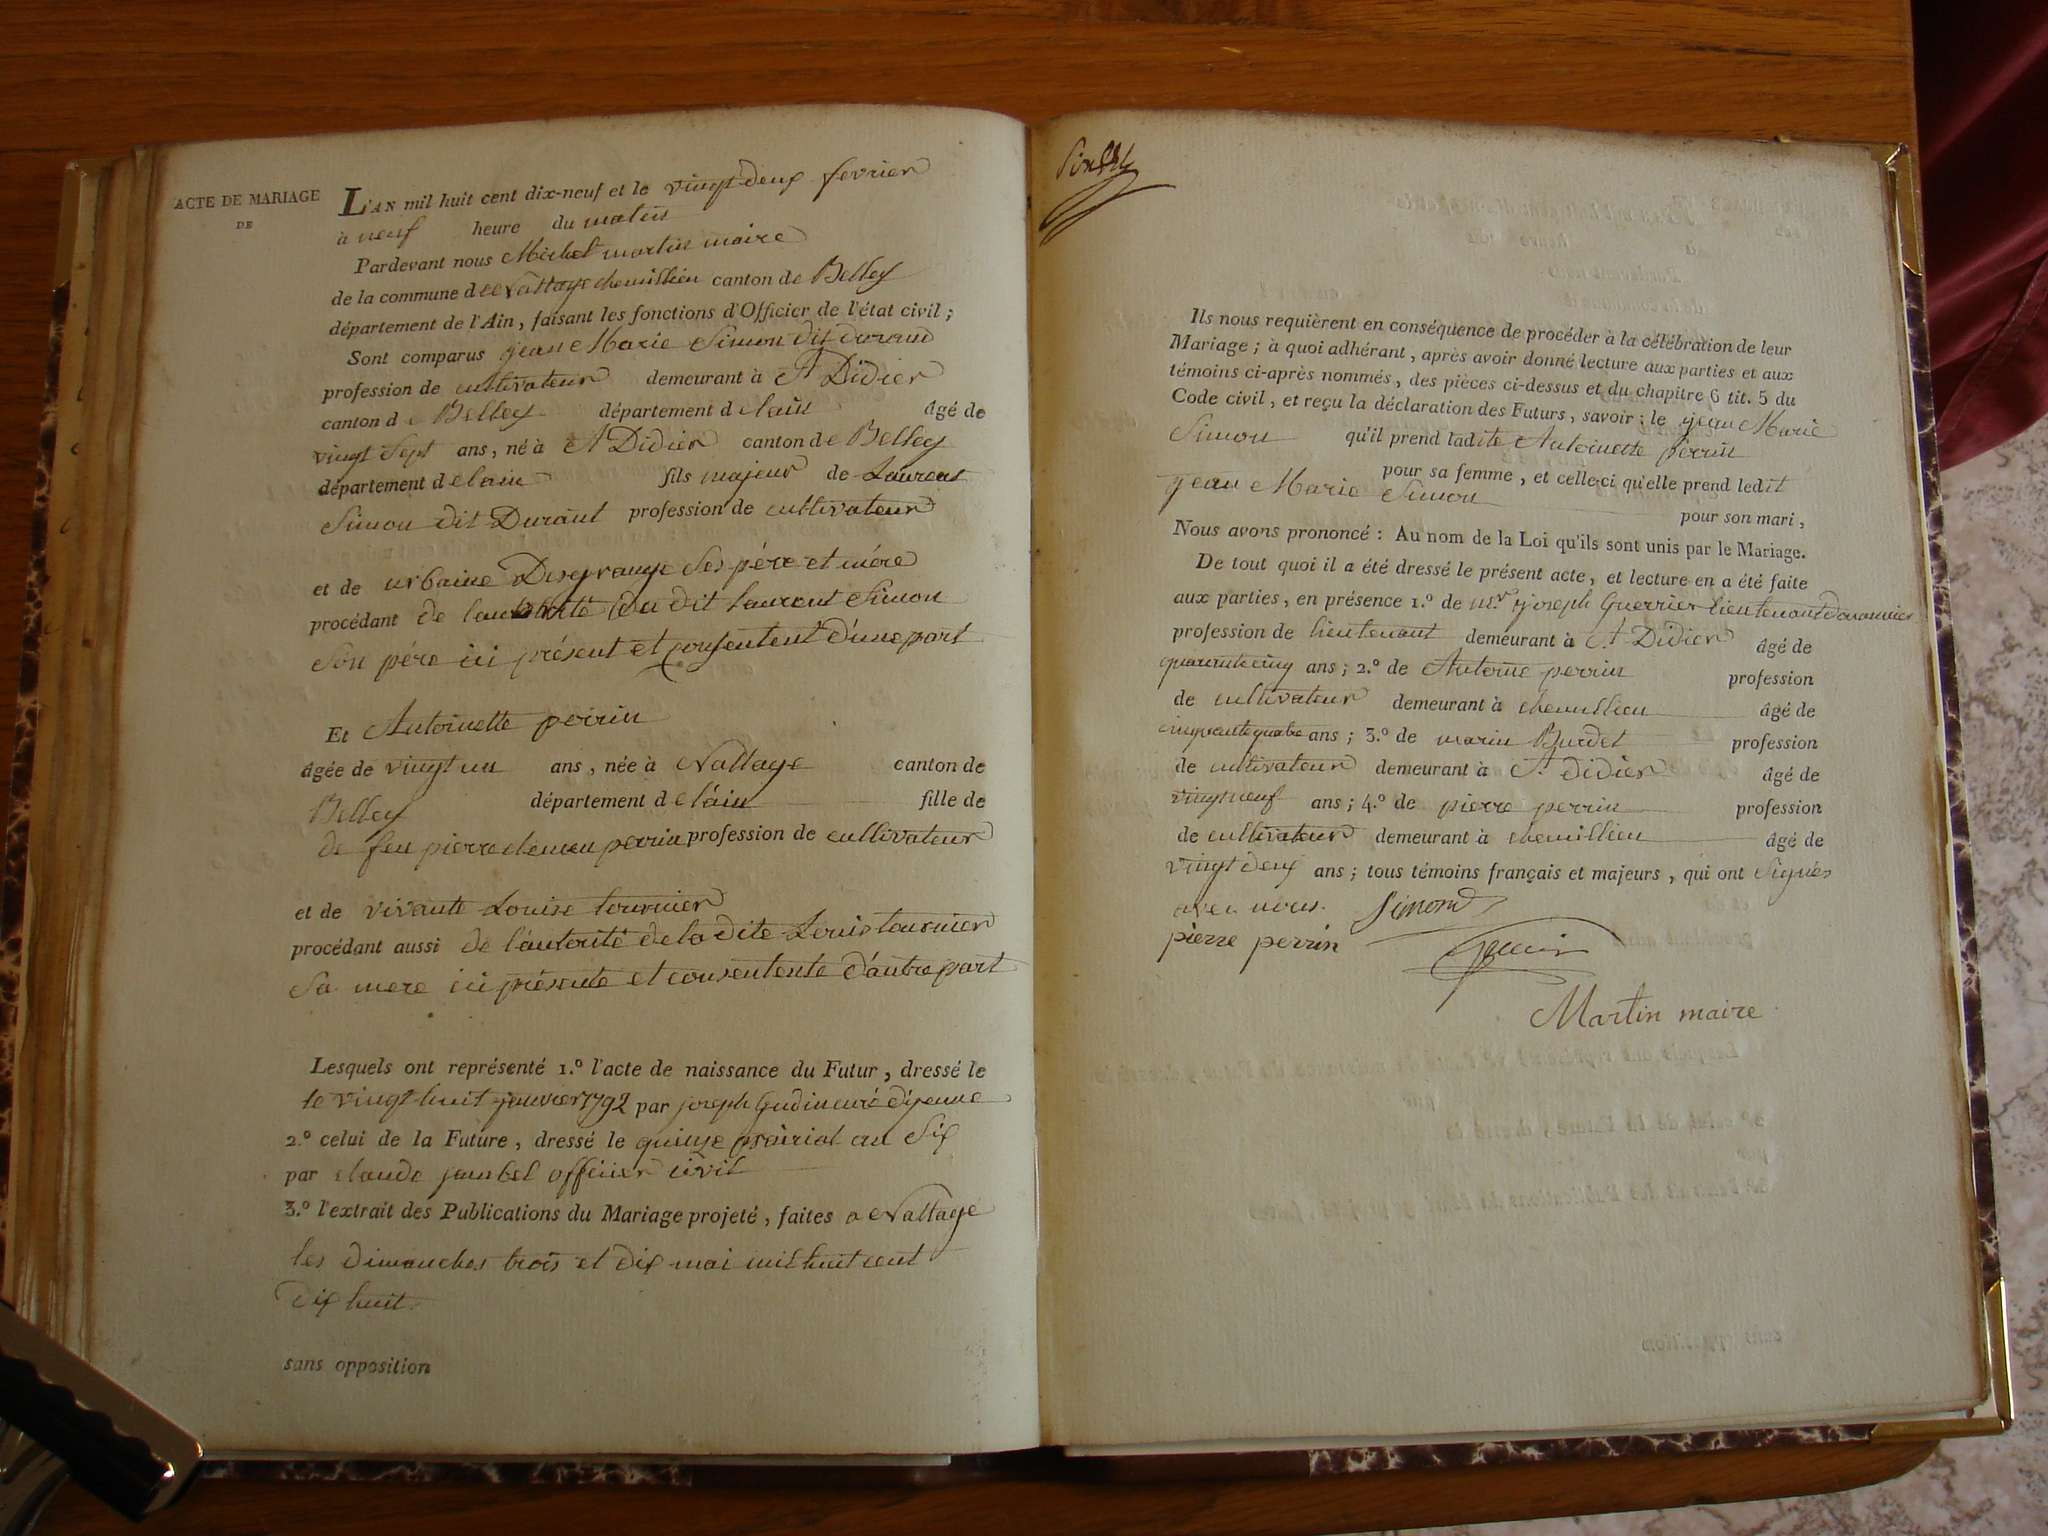 ACTE DE MARIAGE
DE
L'AN mil huit cent dix-neuf et le vingt deux fevrier
à neuf heure du matin
Pardevant nous Michel martin maire
de la commune de Nattage chemillieu canton de Belley
département de l'Ain, faisant les fonctions d'Officier de l'état civil ;
Sont comparus jean Marie Simon dit durand
profession de cultivateur demeurant à St Didier
canton de Belley département de lain âgé de
vingt sept ans, né à St Didier canton de Belley
département de lain fils majeur de Laurent
Simon dit Durant profession de cultivateur
et de urbaine Desgrange Ses pére et mére
procédant de lautorité du dit laurent Simon
Son pére ici présent et consentent d'une part
Et Antoinette perrin
âgée de vingt un ans, née à Nattage canton de
Belley département de l'ain fille de
de feu pierre clemen perrin profession de cultivateur
et de vivante Louise tournier
procédant aussi de l'autorité de la dite Louis tournier
Sa mere ici présente et consentente d'autre part
Lesquels ont représenté 1.º l'acte de naissance du Futur, dressé le
le vingt huit janvier 1792 par joseph Gudin curé d'yenne
2.º celui de la Future, dressé le quinze prairial an Six
par claude jambel officier civil
3.º l'extrait des Publications du Mariage projeté, faites a Nattage
les dimanches trois et dix mai mil huit cent
dix huit.
sans opposition
Ils nous requièrent en conséquence de procéder à la célébration de leur
Mariage ; à quoi adhérant, après avoir donné lecture aux parties et aux
témoins ci-après nommés, des pièces ci-dessus et du chapitre 6 tit. 5 du
Code civil, et reçu la déclaration des Futurs, savoir : le jean Marie
Simon qu'il prend ladite Antoinette perrin
pour sa femme, et celle-ci qu'elle prend ledit
jean Marie Simon
pour son mari,
Nous avons prononcé : Au nom de la Loi qu'ils sont unis par le Mariage.
De tout quoi il a été dressé le présent acte, et lecture en a été faite
aux parties, en présence 1.º de mr. joseph Guerrier lieutenant
profession de lieutenant demeurant à St Didier âgé de
quarante cinq ans ; 2.º de Antoine perrin profession
de cultivateur demeurant à chemillieu âgé de
cinquante quatre ans ; 3.º de marin Burdet profession
de cultivateur demeurant à St didier âgé de
vingt neuf ans ; 4.º de pierre perrin profession
de cultivateur demeurant à chemillieu âgé de
vingt deux ans ; tous témoins français et majeurs, qui ont Signés
avec nous. Simond
pierre perrin
Martin maire